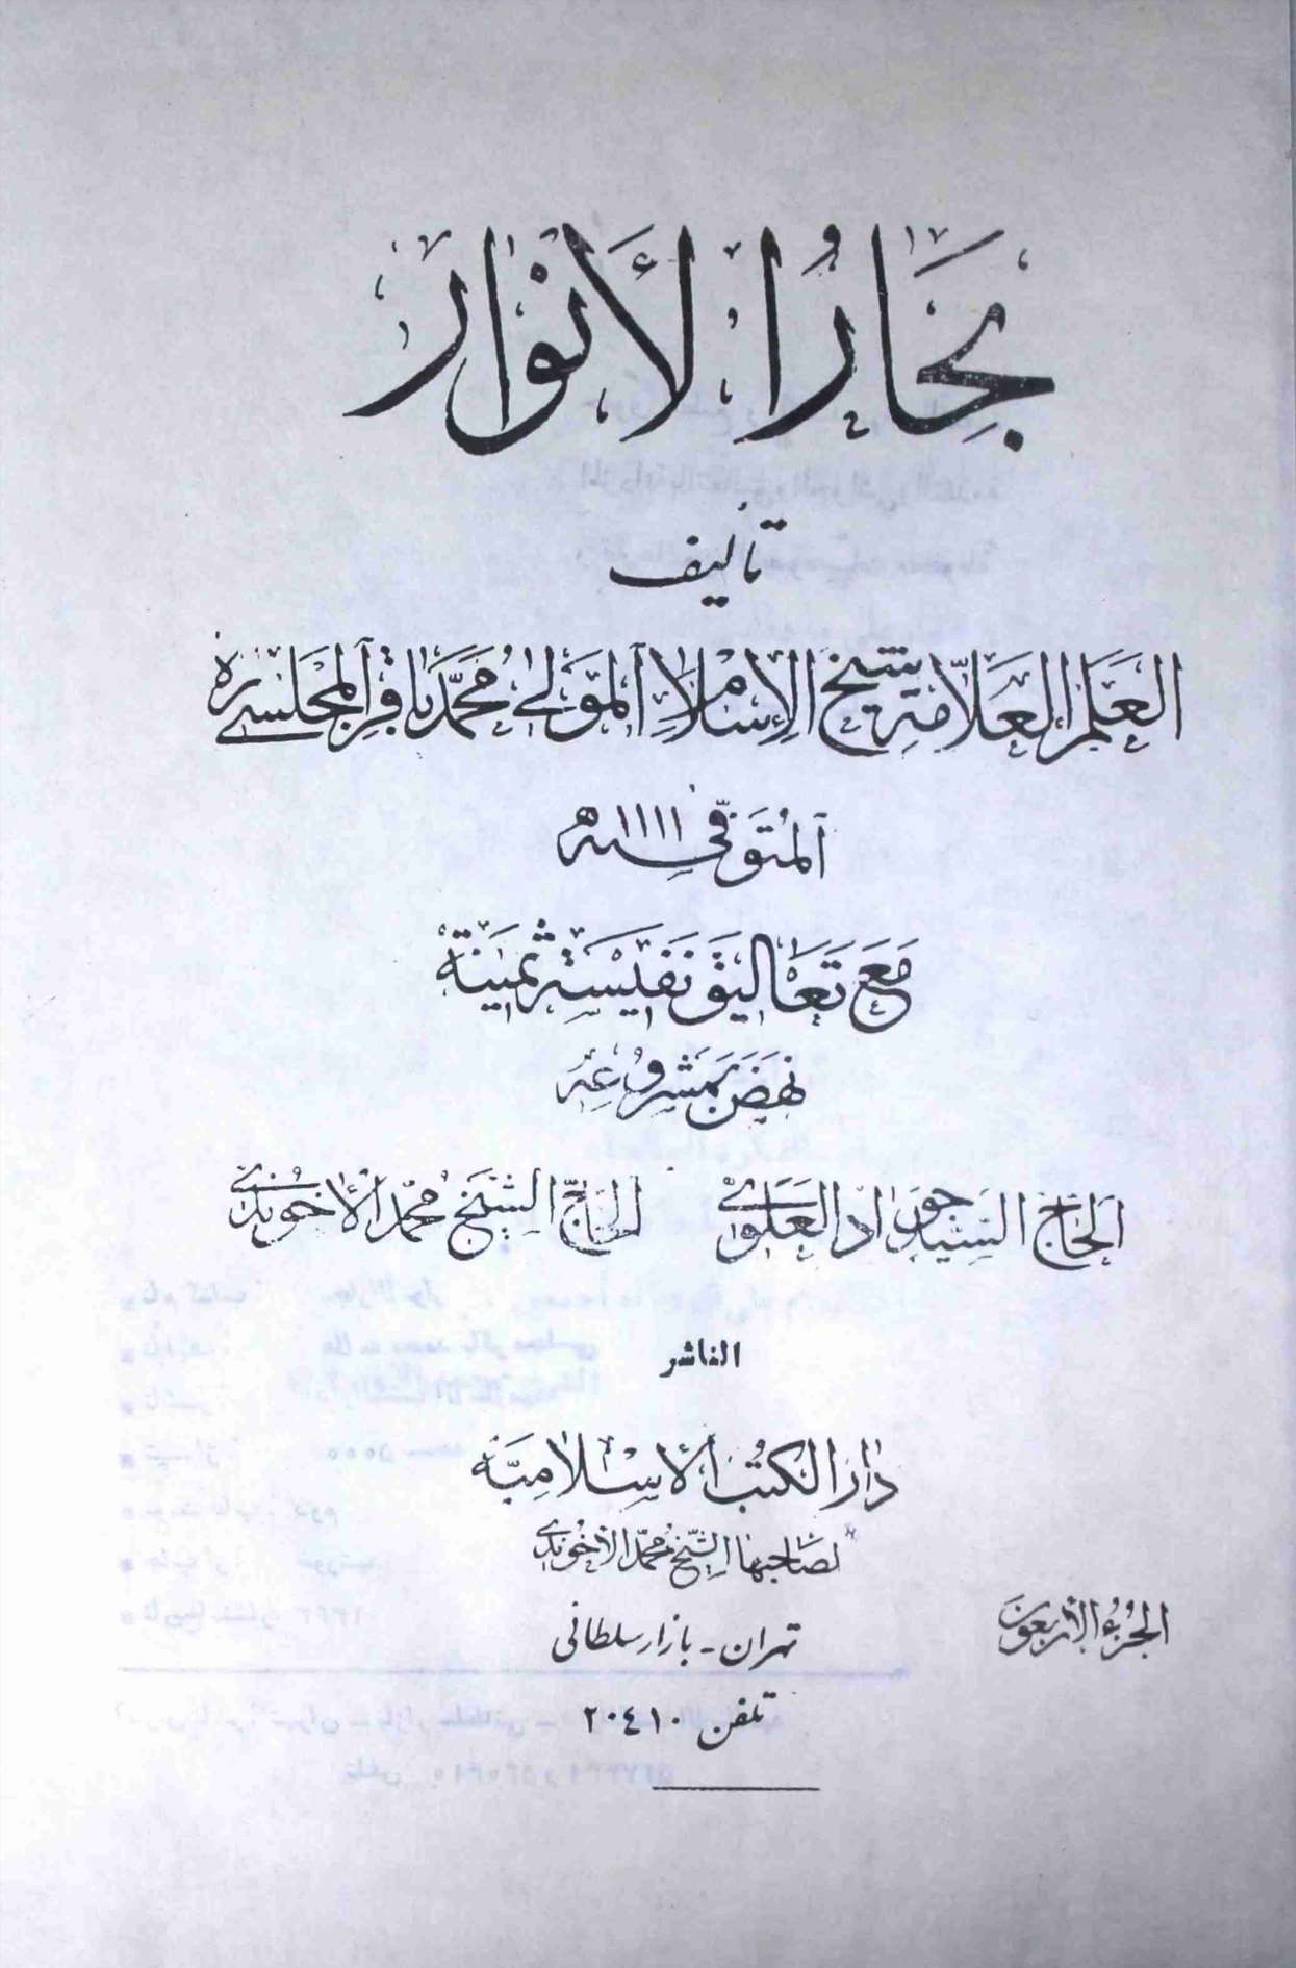 بِحَارُ الأَنوار
تأليف
العَلَم العَلّامَة شَيخ الإسلام المَولى مُحَمَّد بَاقِر المجلسي قدّه
المُتَوَفّى سنة ١١١١ هـ
مَعَ تَعَاليق نَفيسَة ثمينَة
نَهَضَ بمَشرُوعِه
الحَاج السَيِّد جَواد العَلَوي الحَاجّ الشَيخ مُحمّد الآخُوندي
الناشر
دَار الكُتب الاسلاميَّة
لصَاحبها الشَيخ مُحمّد الآخُوندي
الجُزءُ الأربَعون
تهران - بازار سلطاني
تلفن ٢٠٤١٠